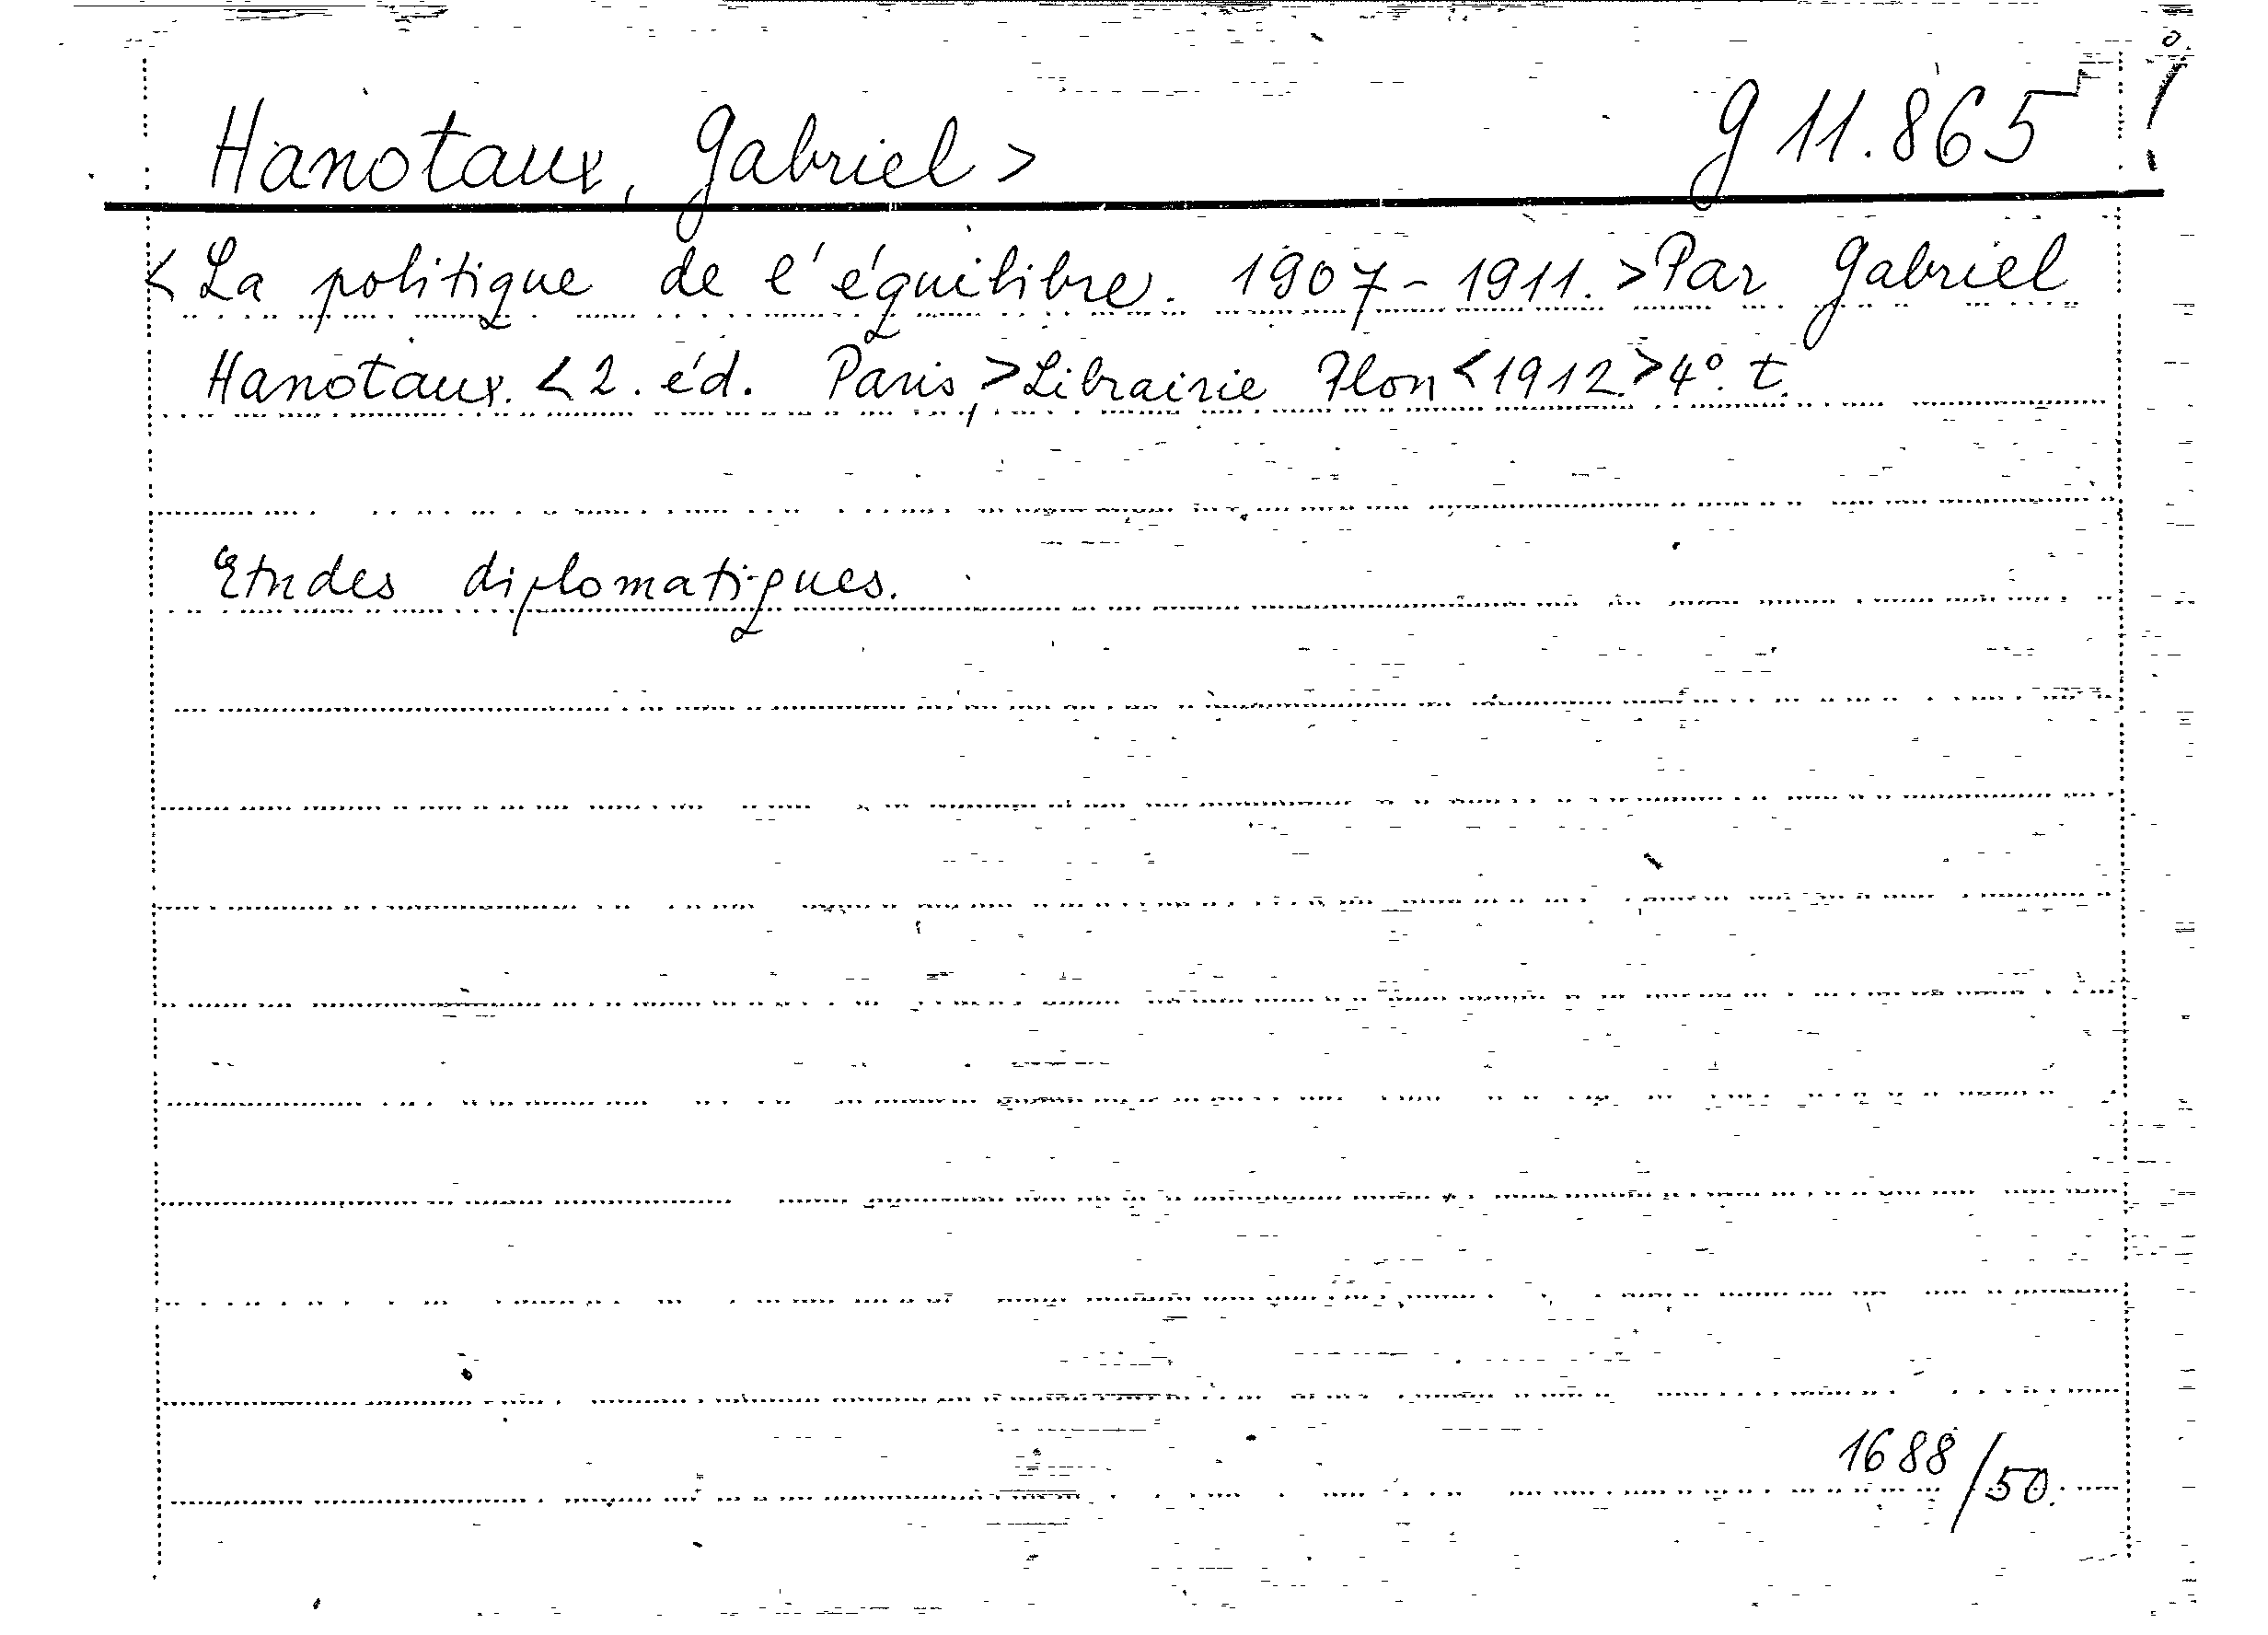 Hanotaux, Gabriel > G 11.865 !
< La politique de l'équilibre. 1907-1911. > Par Gabriel
Hanotaux. < 2. éd. Paris, > Librairie Plon < 1912. > 4°. t.
Etudes diplomatiques.
1688/50.